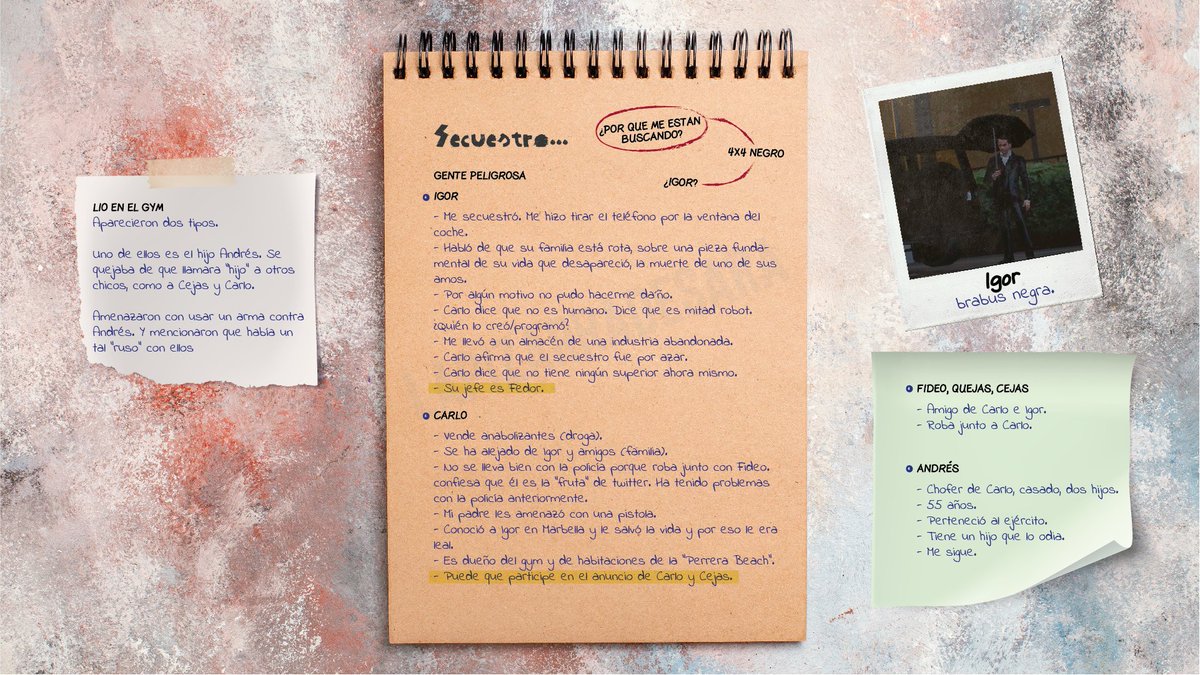 LIO EN EL GYM
Aparecieron dos tipos.
Uno de ellos es el hijo Andrés. Se
quejaba de que llamara "hijo" a otros
chicos, como a Cejas y Carlo.
Amenazaron con usar un arma contra
Andrés. Y mencionaron que había un
tal "ruso" con ellos
Secuestro...
¿POR QUE ME ESTAN
BUSCANDO?
4X4 NEGRO
¿IGOR?
GENTE PELIGROSA
IGOR
- Me secuestró. Me hizo tirar el teléfono por la ventana del
coche.
- Habló de que su familia está rota, sobre una pieza funda-
mental de su vida que desapareció, la muerte de uno de sus
amos.
- Por algún motivo no pudo hacerme daño.
- Carlo dice que no es humano. Dice que es mitad robot.
¿Quién lo creó/programó?
- Me llevó a un almacén de una industria abandonada.
- Carlo afirma que el secuestro fue por azar.
- Carlo dice que no tiene ningún superior ahora mismo.
- Su jefe es Fedor.
CARLO
- Vende anabolizantes (droga).
- Se ha alejado de Igor y amigos (familia).
- No se lleva bien con la policía porque roba junto con Fideo.
confiesa que él es la "fruta" de twitter. Ha tenido problemas
con la policía anteriormente.
- Mi padre les amenazó con una pistola.
- Conoció a Igor en Marbella y le salvó la vida y por eso le era
leal.
- Es dueño del gym y de habitaciones de la "Perrera Beach".
- Puede que participe en el anuncio de Carlo y Cejas.
Igor
brabus negra.
FIDEO, QUEJAS, CEJAS
- Amigo de Carlo e Igor.
- Roba junto a Carlo.
ANDRÉS
- Chofer de Carlo, casado, dos hijos.
- 55 años.
- Perteneció al ejército.
- Tiene un hijo que lo odia.
- Me sigue.